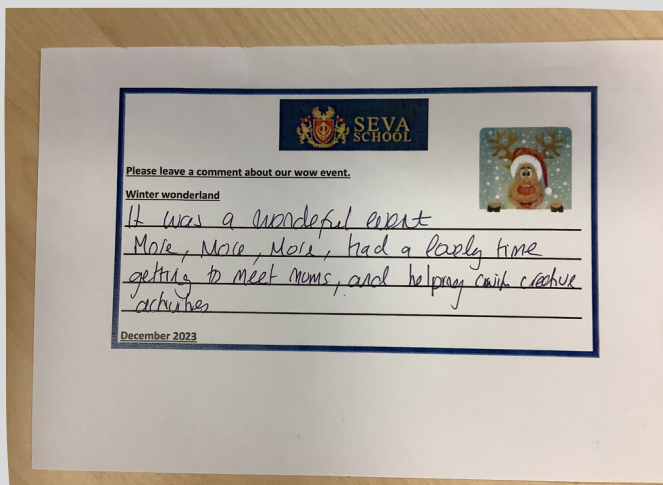 SEVA
SCHOOL
Please leave a comment about our wow event.
Winter wonderland
It was a wondeful event
More, More, More, had a lovely time
getting to meet mums, and helping with creative
activities
December 2023